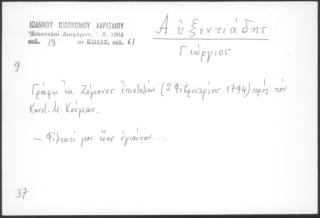 ΙΩΑΝΝΟΥ ΟΙΚΟΝΟΜΟΥ ΛΑΡΙΣΑΙΟΥ
Ἐπιστολαὶ Διαφόρων, Ἀ. 1964
σελ. 18 ΚΩΔΙΞ, σελ. 61
Αὐξεντιάδης
Γεώργιος
9
Γράφει ἐκ Ζέμονος ἐπιστολὴν (2 Φεβρουαρίου 1794) πρὸς τὸν
Κωνσ. Μ. Κούμαν.
– Φίλτατέ μοι ὑγιαίνων...
37